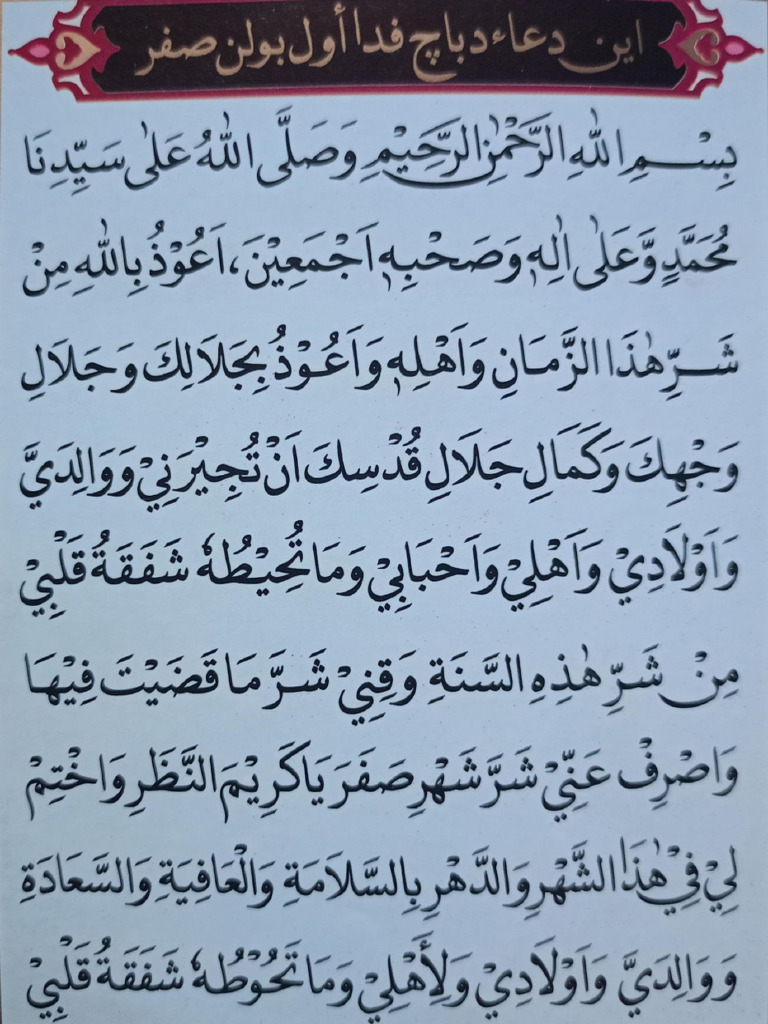 اين دعاء دباچ فدا أول بولن صفر
بِسْمِ اللهِ الرَّحْمٰنِ الرَّحِيْمِ وَصَلَّى اللهُ عَلٰى سَيِّدِنَا
مُحَمَّدٍ وَّعَلٰى اٰلِهٖ وَصَحْبِهٖ اَجْمَعِيْنَ، اَعُوْذُ بِاللهِ مِنْ
شَرِّ هٰذَا الزَّمَانِ وَاَهْلِهٖ وَاَعُوْذُ بِجَلَالِكَ وَجَلَالِ
وَجْهِكَ وَكَمَالِ جَلَالِ قُدْسِكَ اَنْ تُجِيْرَنِيْ وَوَالِدَيَّ
وَاَوْلَادِيْ وَاَهْلِيْ وَاَحْبَابِيْ وَمَا تُحِيْطُهٗ شَفَقَةُ قَلْبِيْ
مِنْ شَرِّ هٰذِهِ السَّنَةِ وَقِنِيْ شَرَّ مَا قَضَيْتَ فِيْهَا
وَاصْرِفْ عَنِّيْ شَرَّ شَهْرِ صَفَرَ يَا كَرِيْمَ النَّظَرِ وَاخْتِمْ
لِيْ فِيْ هٰذَا الشَّهْرِ وَالدَّهْرِ بِالسَّلَامَةِ وَالْعَافِيَةِ وَالسَّعَادَةِ
وَوَالِدَيَّ وَاَوْلَادِيْ وَلِأَهْلِيْ وَمَا تَحُوْطُهٗ شَفَقَةُ قَلْبِيْ